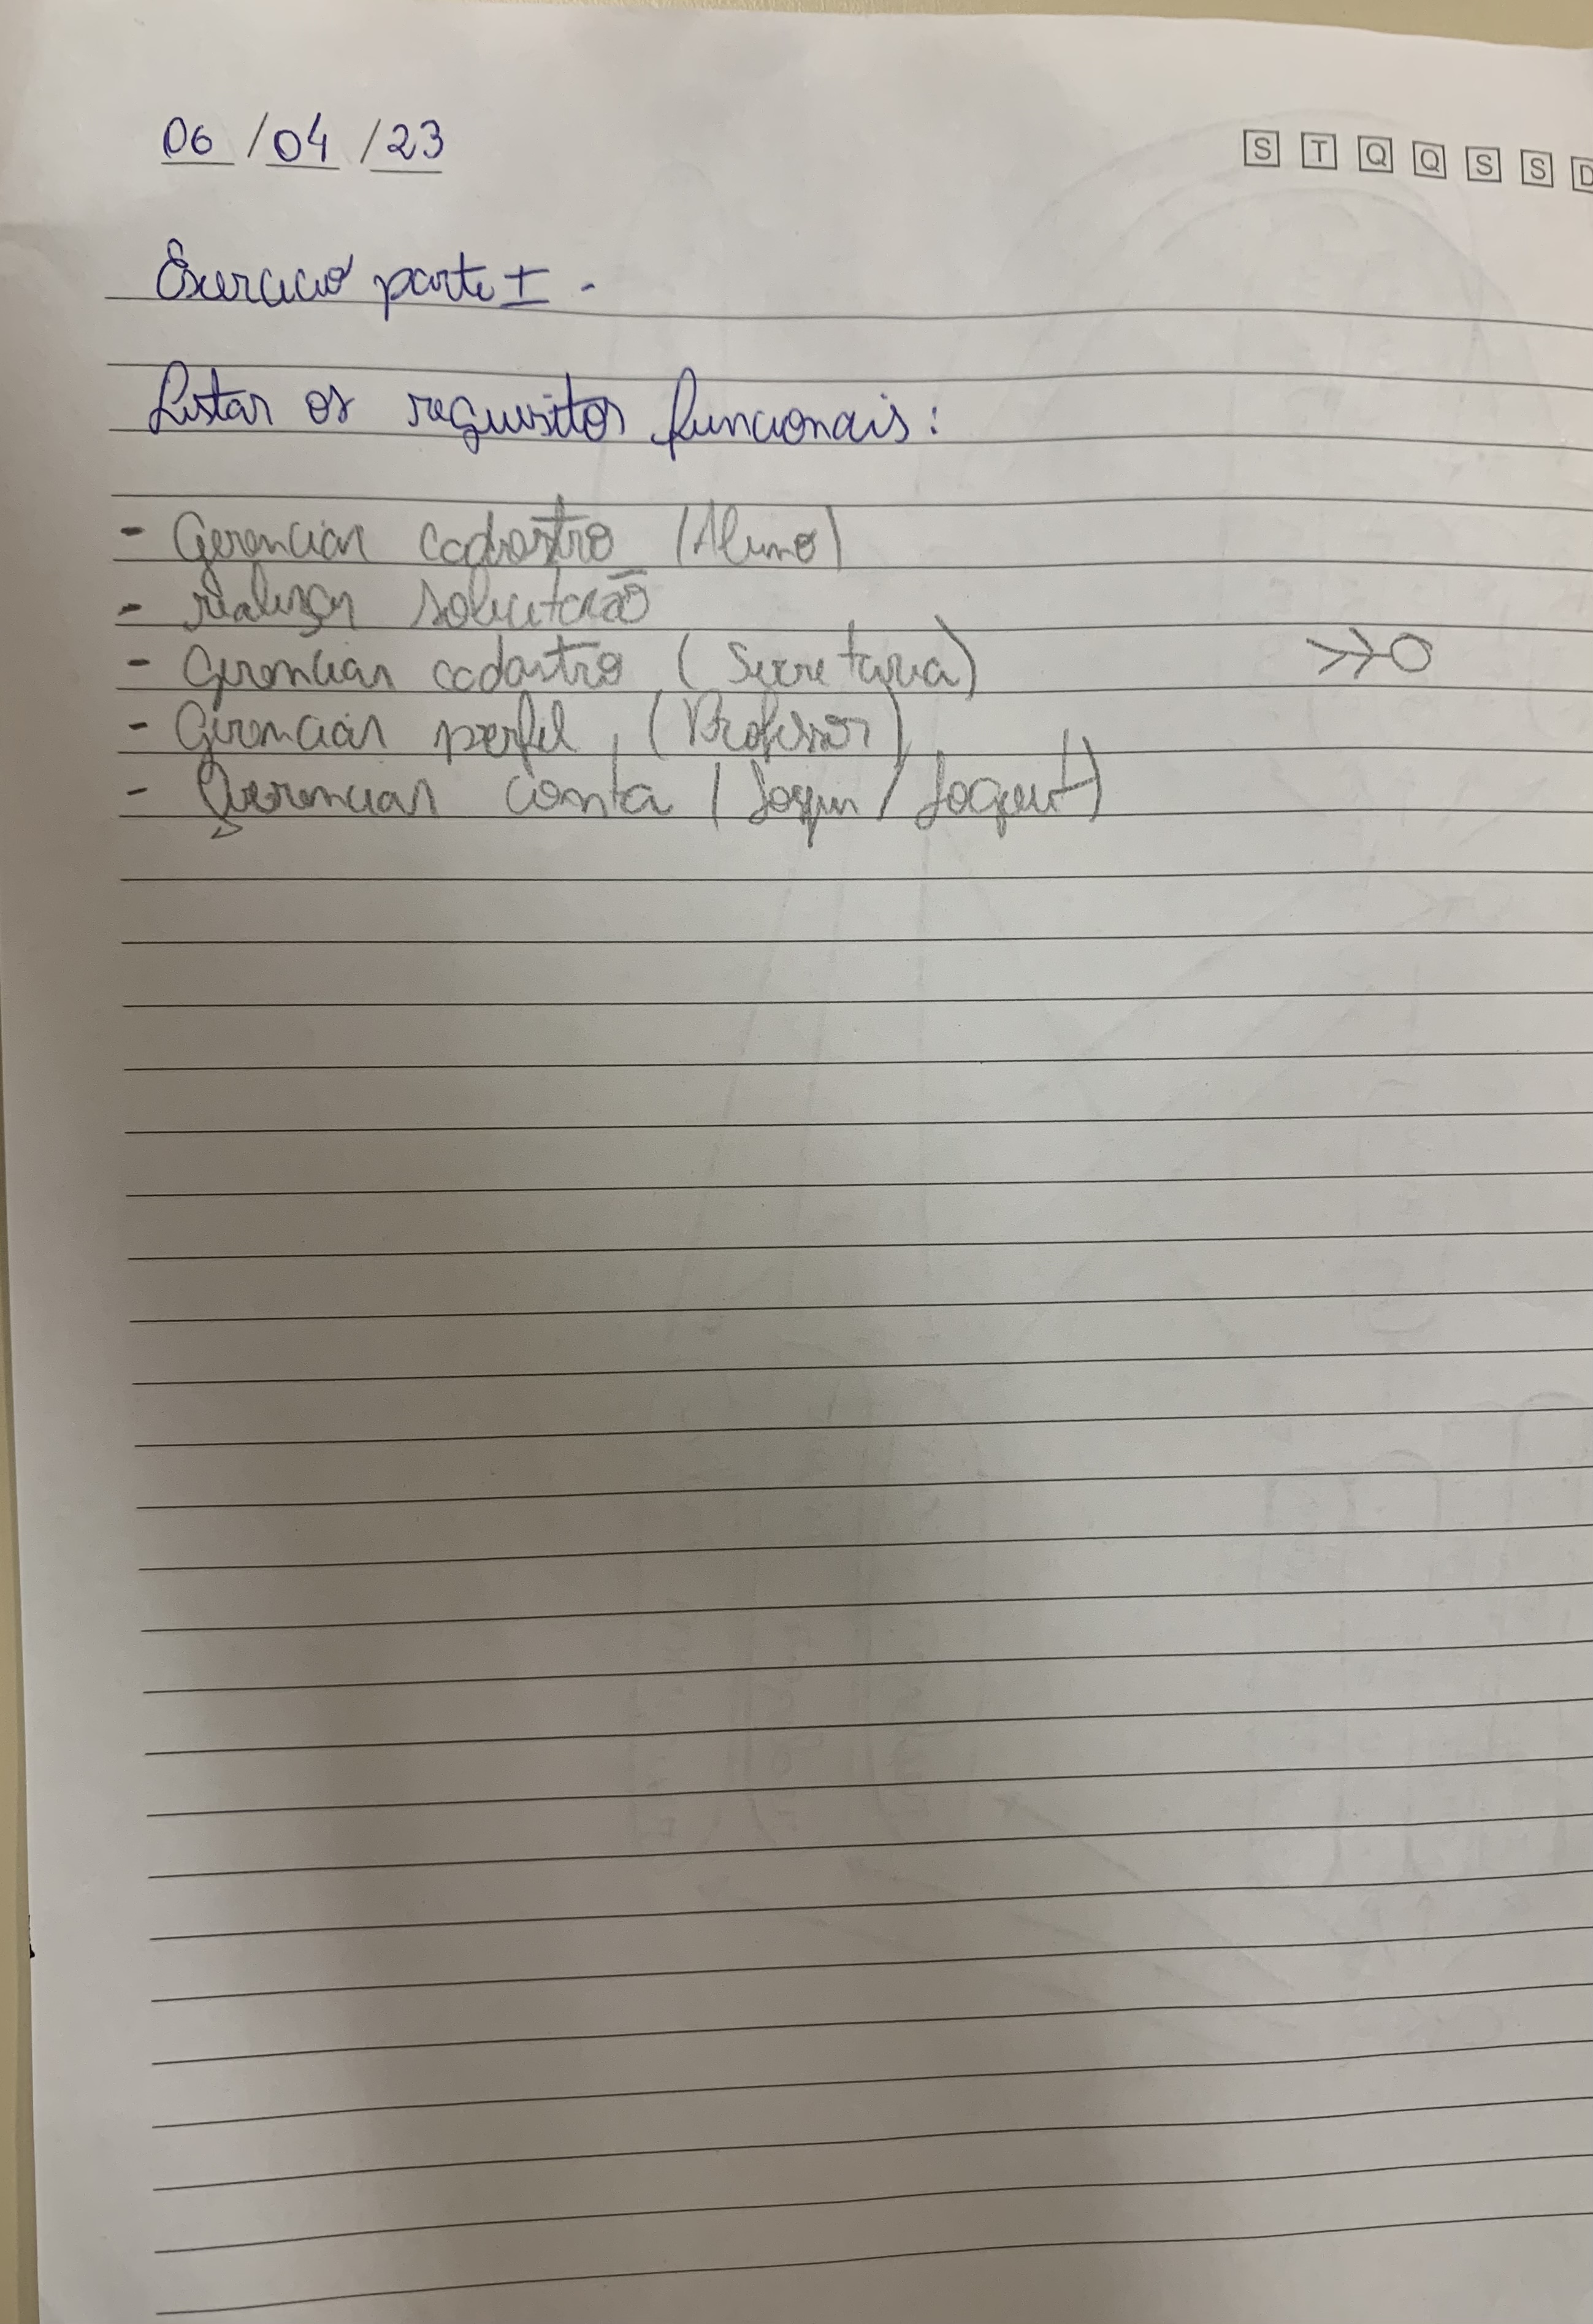 06/04/23
S T Q Q S S D
Exercicio parte I -
Listar os requisitos funcionais:
- Gerenciar cadastro (Aluno)
- realizar solicitação
- Gerenciar cadastro (Secretaria)
- Gerenciar perfil (Professor)
- Gerenciar conta (login / logout)